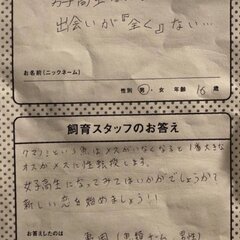 出会いが『全く』ない…
お名前(ニックネーム)
性別 男・女 年齢 16 歳
飼育スタッフのお答え
クマノミという魚はメスがいなくなると1番大きな
オスがメスに性転換します。
女子高生になってみてはいかがでしょうか?
新しい恋を始めましょう!!
お答えしたのは